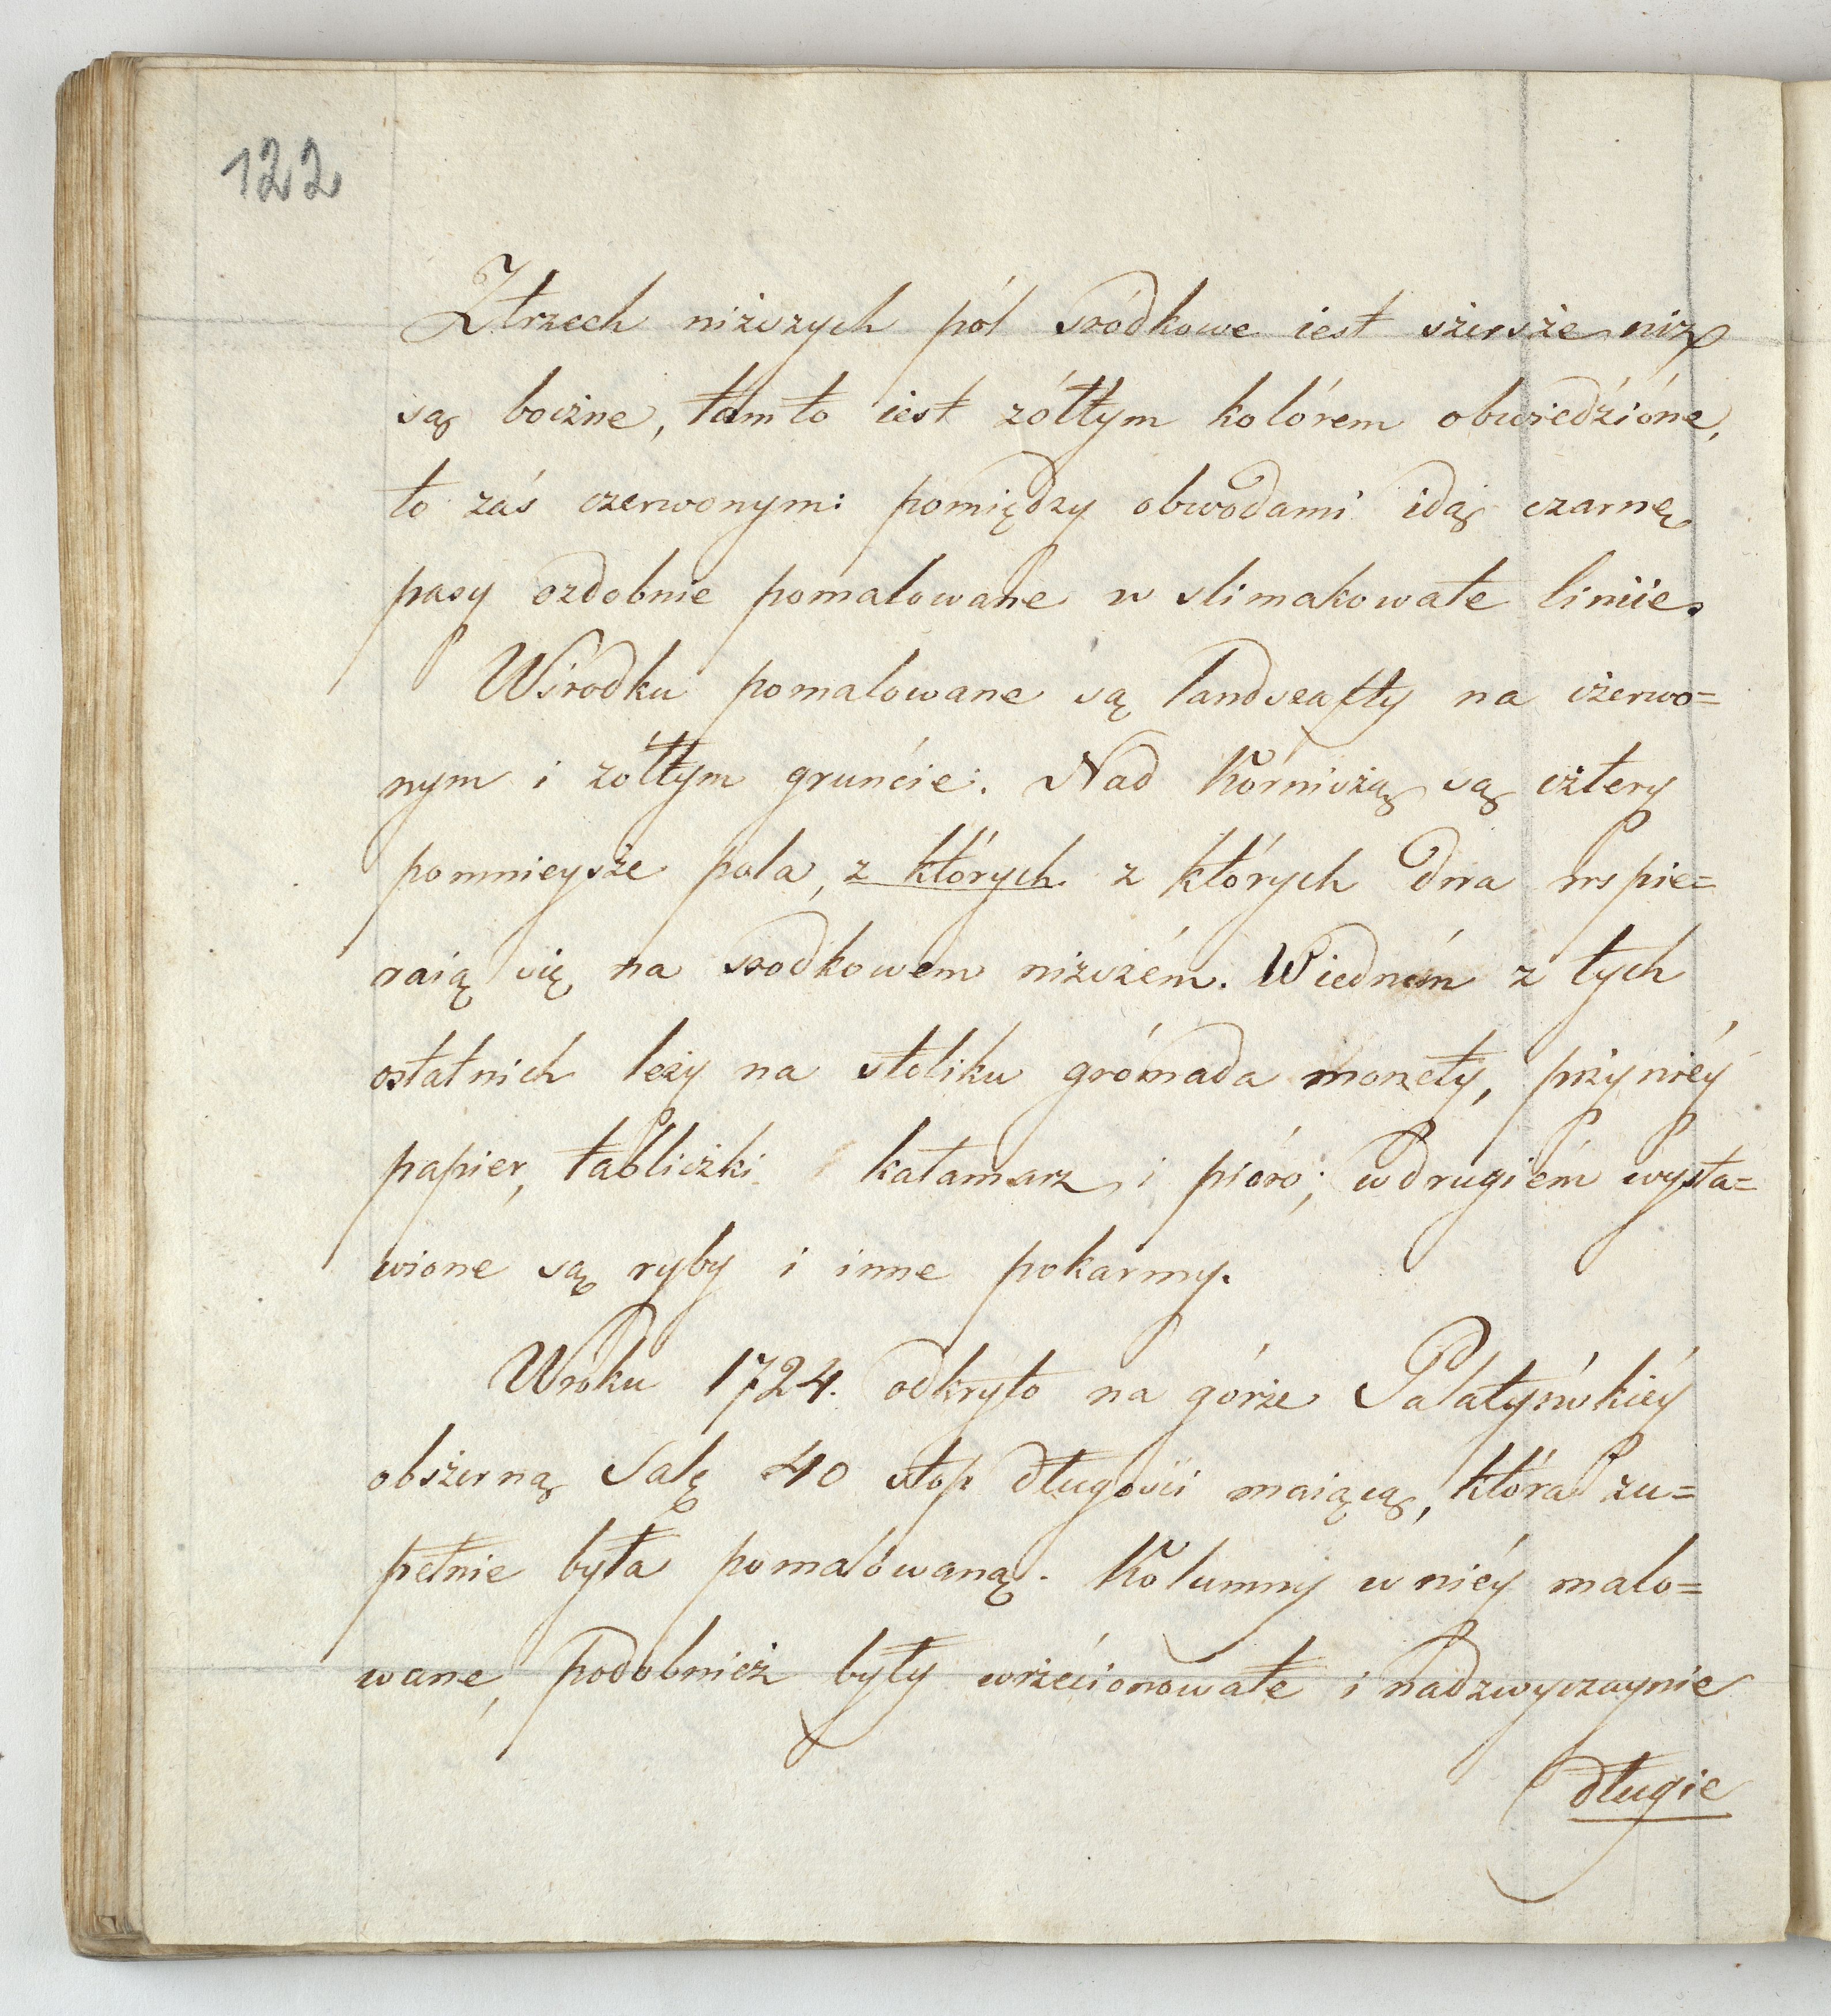 122
Ztrzech niższych pól sródkowe iest szersze niż
są boczne, tamto iest żółtym kolórem obwiedźióne,
to zaś czerwonym: pomiędzy obwodami idą czarne
pasy ozdobnie pomalowane w slimakowate liniie.
Wśrodku pomalowane są landszafty na czerwo=
nym i żółtym gruńcie: Nad Korniszą są cztery
pomnieysze pola, z których z których dwa wspie=
raią się na srodkowem niższém. W iedném z tych
ostatnich leży na stoliku grómada monety, przy niéy
papier, tabliczki kałamarz i pióro; w drugiém wysta=
wione są ryby i inne pokarmy.
W roku 1724. odkryto na górze Palatyńskiéy
obszerną Salę 40 stop długości maiącą, która zu=
pełnie była pomalówaną. Kolumny w niéy malo=
wane, podobnież były wrzecionowate i nadzwyczaynie
długie